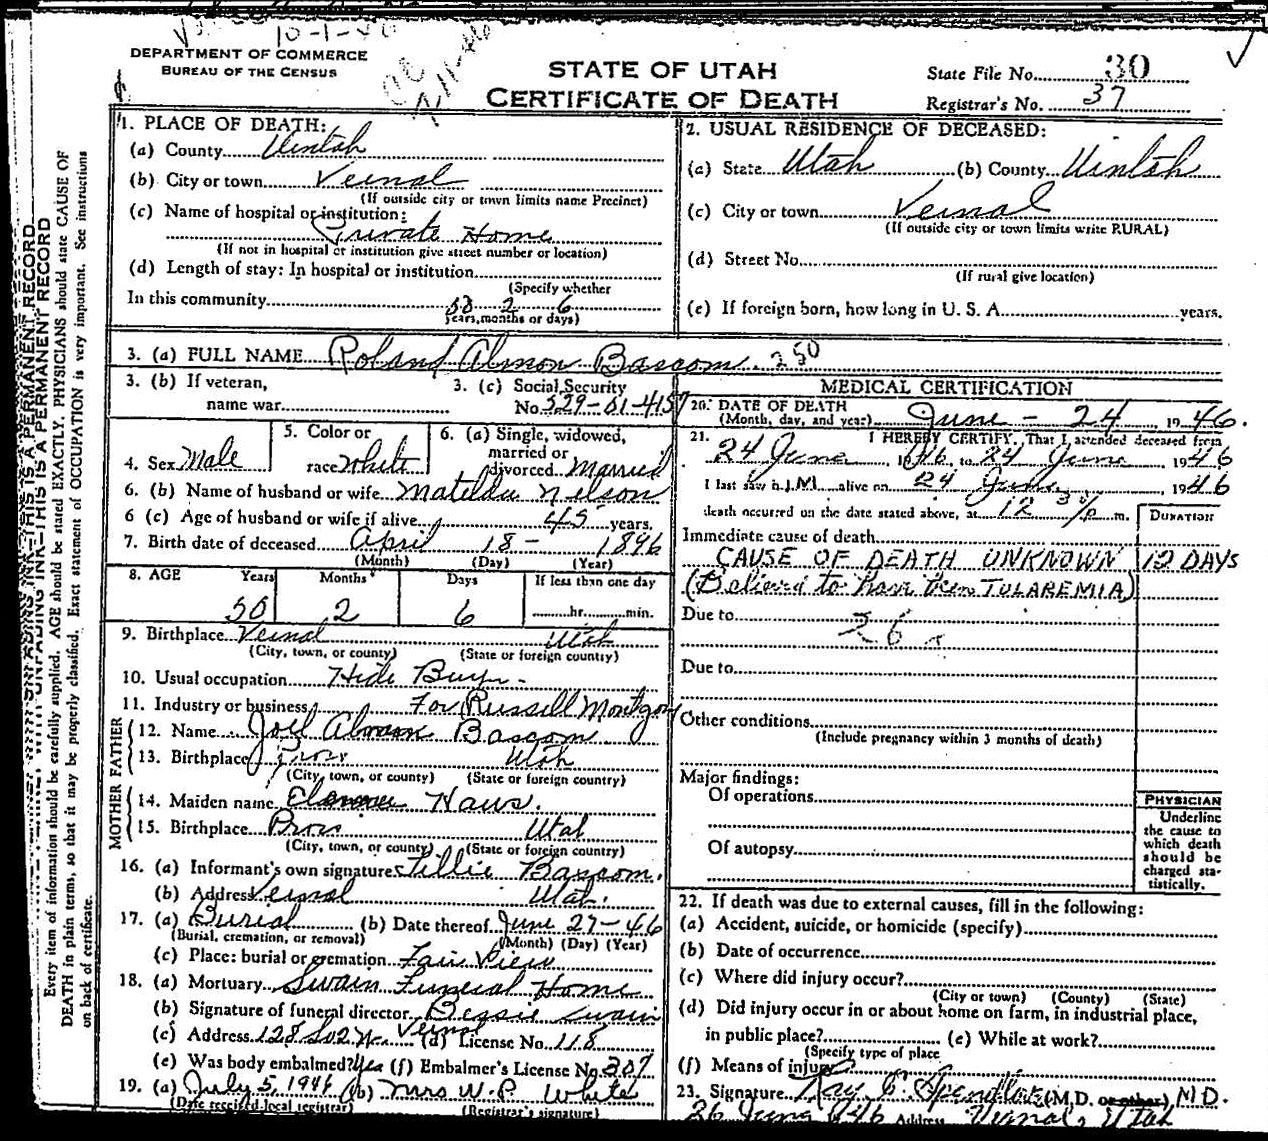 10-1-46
DEPARTMENT OF COMMERCE
BUREAU OF THE CENSUS
STATE OF UTAH
CERTIFICATE OF DEATH
State File No. 30
Registrar's No. 37
1. PLACE OF DEATH:
(a) County Uintah
(b) City or town Vernal
(If outside city or town limits name Precinct)
(c) Name of hospital or institution:
Private Home
(If not in hospital or institution give street number or location)
(d) Length of stay: In hospital or institution
(Specify whether
In this community 50 2 6
years, months or days)
2. USUAL RESIDENCE OF DECEASED:
(a) State Utah (b) County Uintah
(c) City or town Vernal
(If outside city or town limits write RURAL)
(d) Street No.
(If rural give location)
(e) If foreign born, how long in U. S. A. years.
3. (a) FULL NAME Roland Almon Bascom 250
3. (b) If veteran,
name war
3. (c) Social Security
No. 529-01-4157
4. Sex Male
5. Color or
race White
6. (a) Single, widowed,
married or
divorced Married
6. (b) Name of husband or wife Matilda Nelson
6 (c) Age of husband or wife if alive 45 years.
7. Birth date of deceased April 18- 1896
(Month) (Day) (Year)
8. AGE Years Months Days If less than one day
50 2 6 hr. min.
9. Birthplace Vernal Utah
(City, town, or county) (State or foreign country)
10. Usual occupation Hide Buyer-
11. Industry or business For Russell Montgom
FATHER
12. Name Joel Almon Bascom
13. Birthplace Provo Utah
(City, town, or county) (State or foreign country)
MOTHER
14. Maiden name Haws.
15. Birthplace Provo Utah
(City, town, or county) (State or foreign country)
16. (a) Informant's own signature Tillie Bascom.
(b) Address Vernal Utah.
17. (a) Burial (b) Date thereof June 27-46
(Burial, cremation, or removal) (Month) (Day) (Year)
(c) Place: burial or cremation Fair View
18. (a) Mortuary Swain Funeral Home
(b) Signature of funeral director Bessie Swain
(c) Address 128 So 2 W. Vernal (d) License No. 118
(e) Was body embalmed? Yes (f) Embalmer's License No. 307
19. (a) July 5, 1946 (b) Mrs W. P. White
(Date received local registrar) (Registrar's signature)
MEDICAL CERTIFICATION
20. DATE OF DEATH
(Month, day, and year) June - 24, 1946.
21. I HEREBY CERTIFY, That I attended deceased from
24 June, 1946, to 24 June, 1946
I last saw h.IM alive on 24 June, 1946
death occurred on the date stated above, at 12 30/P m.
DURATION
Immediate cause of death
CAUSE OF DEATH UNKNOWN 12 DAYS
(Believed to have been TULAREMIA)
Due to
26
Due to
Other conditions
(Include pregnancy within 3 months of death)
Major findings:
Of operations
Of autopsy
PHYSICIAN
Underline
the cause to
which death
should be
charged sta-
tistically.
22. If death was due to external causes, fill in the following:
(a) Accident, suicide, or homicide (specify)
(b) Date of occurrence
(c) Where did injury occur?
(City or town) (County) (State)
(d) Did injury occur in or about home on farm, in industrial place,
in public place? (e) While at work?
(Specify type of place
(f) Means of injury
23. Signature Ray E. Spendlove (M.D. or other) M.D.
26 June 1946 Address Vernal, Utah
THIS IS A PERMANENT RECORD
Every item of information should be carefully supplied. AGE should be stated EXACTLY. PHYSICIANS should state CAUSE OF
DEATH in plain terms, so that it may be properly classified. Exact statement of OCCUPATION is very important. See instructions
on back of certificate.